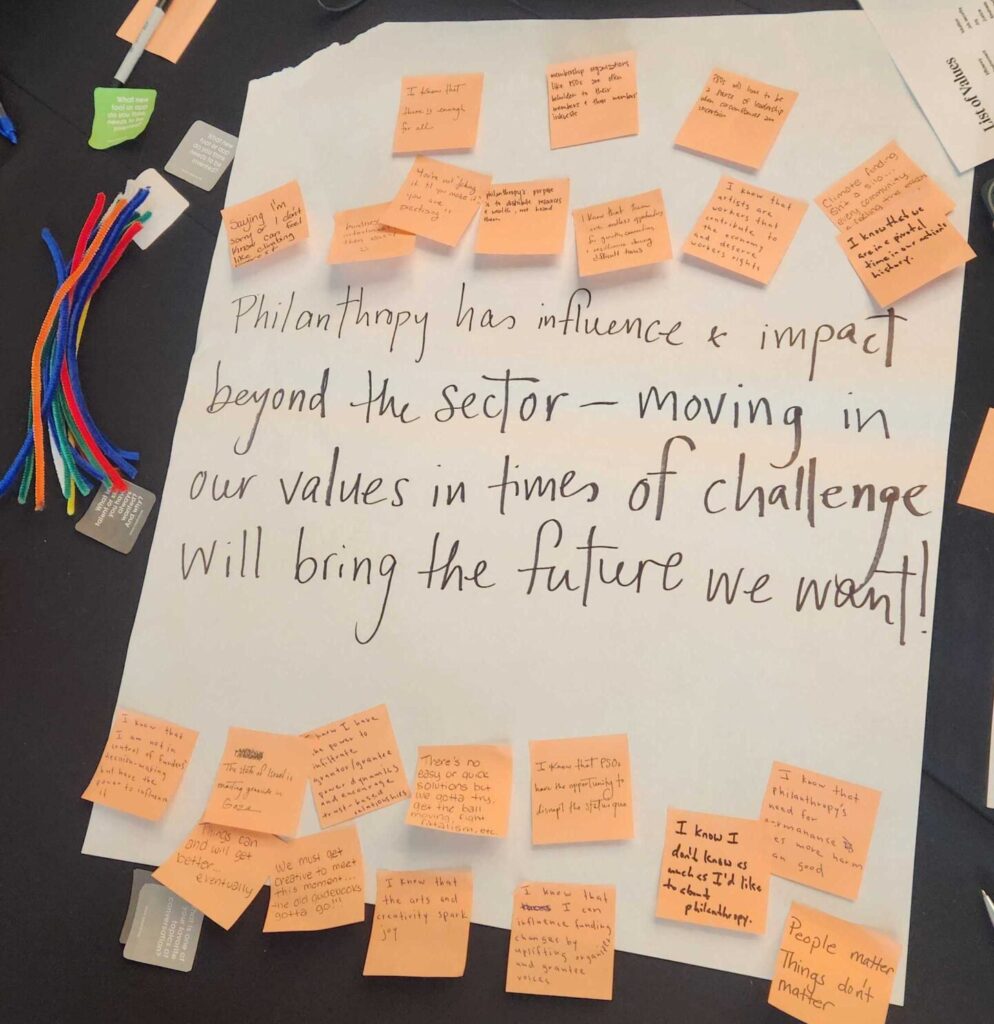 What new
tool or app
do you think
needs to be
invented?
List of Values
I know that
there is enough
for all.
membership organizations
like PSOs are often
beholden to their
members + those members'
interests
PSOs will have to be
a place of leadership
when circumstances are
uncertain
Saying I'm
sorry or I don't
know can feel
like climbing
You're not "faking
it til you make it"
you are
practising!!
philanthropy's purpose
is to distribute resources
& wealth, not hoard
them
I know that there
are endless opportunities
for growth, connection
& resilience during
difficult times.
I know that
artists are
workers that
contribute to
the economy
and deserve
workers rights
Climate funding
I know that we
are in a pivotal
time in our nation's
history.
Philanthropy has influence & impact
beyond the sector – moving in
our values in times of challenge
will bring the future we want!
I know that
I am not in
control of funders'
decision-making
but have the
power to influence
it
The state of Israel is
committing genocide in
Gaza
know I have
the power to
infiltrate
grantor/grantee
power dynamics
and encourage
trust-based
relationships
There's no
easy or quick
solutions but
we gotta try,
get the ball
moving, fight
fatalism, etc.
I know that PSOs
have the opportunity to
disrupt the status quo
I know that
Philanthropy's
need for
permanance
es more harm
an good
Things can
and will get
better...
eventually
We must get
creative to meet
this moment...
the old guidebooks
gotta go!!!
I know that
the arts and
creativity spark
joy
I know that
I can
influence funding
changes by
uplifting
and grantee
voices
I know I
don't know as
much as I'd like
to about
philanthropy.
People matter
Things don't
matter